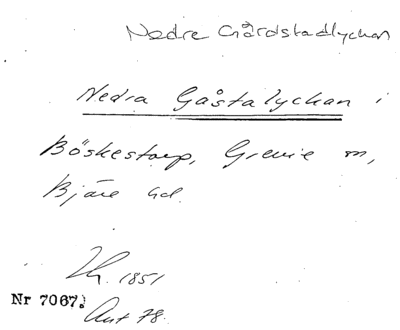 Nedre Gårdstadlyckan
Nedra Gåstalyckan i
Böskestorp, Grevie sn,
Bjäre hd.
1851
Nr 7067.
Ant 78.